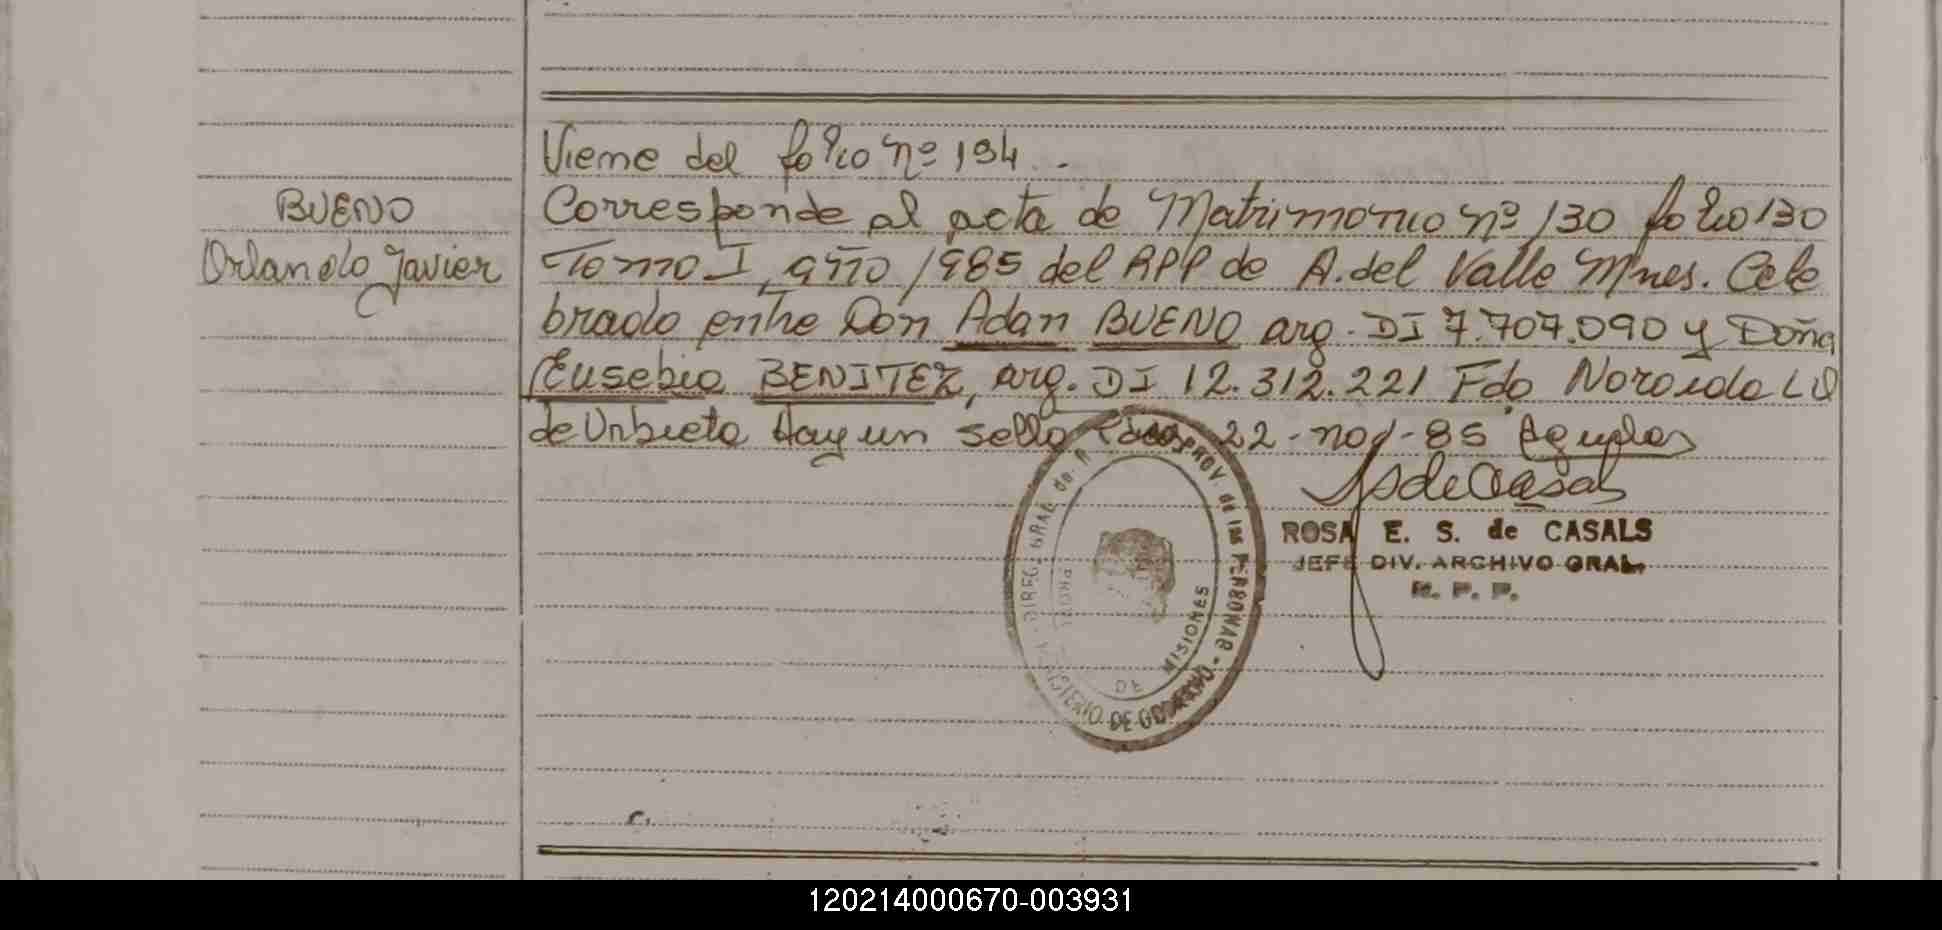 Viene del folio nº 194.-
BUENO
Orlando Javier
Corresponde al acta de Matrimonio nº 130 folio 130
Tomo I, año 1985 del RPP de A. del Valle Mnes. Cele
brado entre Don Adan BUENO arg. DI 7.707.090 y Doña
Eusebia BENITEZ, arg. DI 12.312.221 Fdo
de Urbieta Hay un sello 22-nov-85
SdeCasals
ROSA E. S. de CASALS
JEFE DIV. ARCHIVO GRAL.
R. P. P.
DIREC. GRAL de PROV. de las PERSONAS - MINISTERIO DE GOBIERNO
DE MISIONES
120214000670-003931